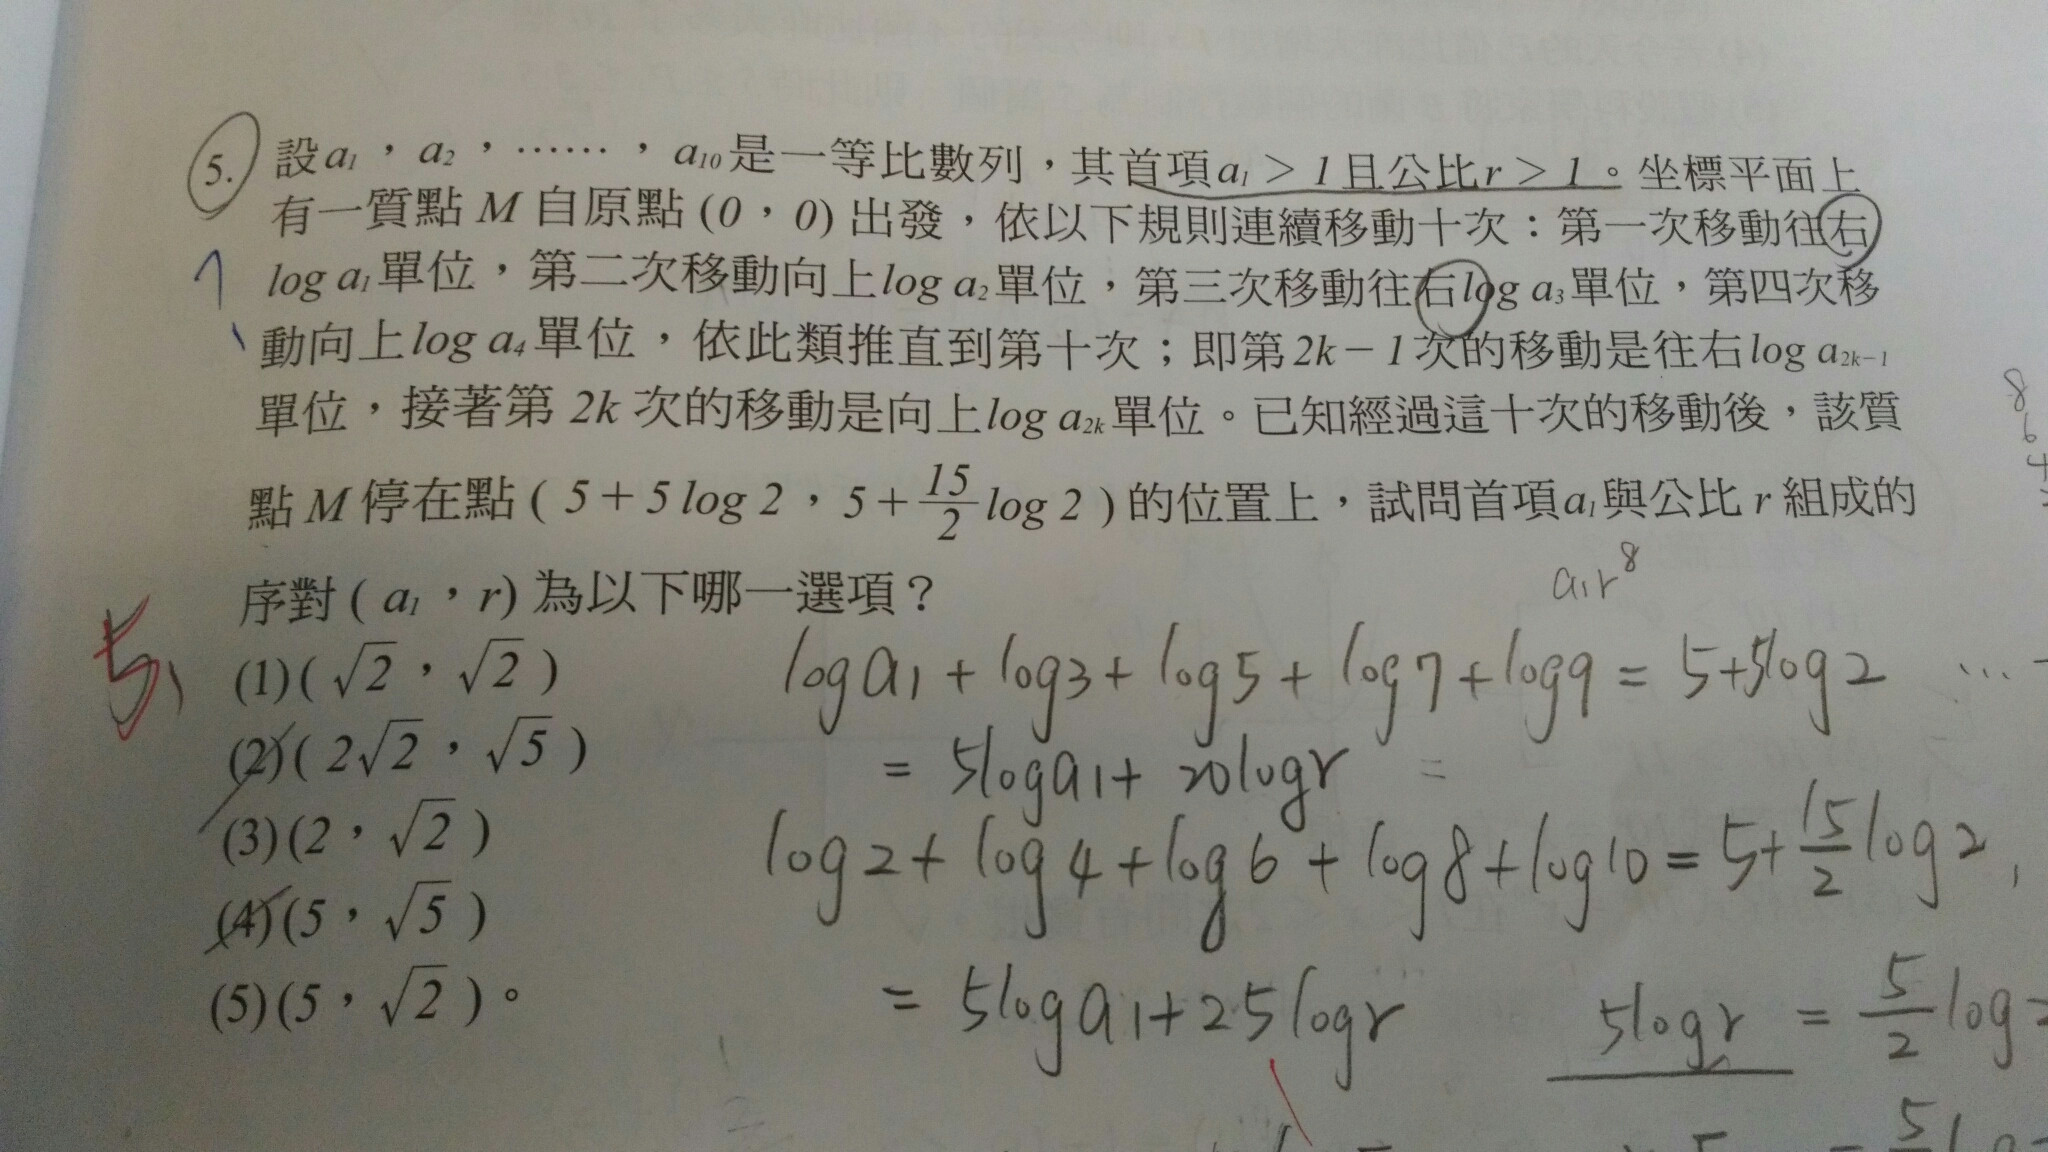 5. 設a₁，a₂，……，a₁₀是一等比數列，其首項a₁ > 1且公比r > 1。坐標平面上
有一質點 M 自原點 (0，0) 出發，依以下規則連續移動十次：第一次移動往右
log a₁單位，第二次移動向上log a₂單位，第三次移動往右log a₃單位，第四次移
動向上log a₄單位，依此類推直到第十次；即第2k－1次的移動是往右log a₂ₖ₋₁
單位，接著第 2k 次的移動是向上log a₂ₖ單位。已知經過這十次的移動後，該質
點 M 停在點 ( 5＋5 log 2，5＋15/2 log 2 ) 的位置上，試問首項a₁與公比 r 組成的
序對 ( a₁，r) 為以下哪一選項？
a₁r⁸
(1)( √2，√2 )
(2)( 2√2，√5 )
(3)(2，√2 )
(4)(5，√5 )
(5)(5，√2 )。
5
log a₁ + log3 + log5 + log7 + log9 = 5+5log2 …
= 5loga₁+ 20logr =
log2+ log4+log6+log8+log10= 5+15/2 log2
= 5loga₁+25logr
5logr = 5/2 log